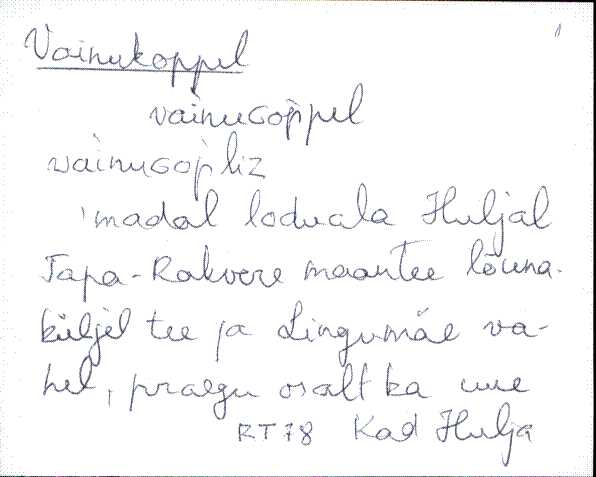 Vainukoppel
vainuGoppel
vainuGopliz
madal loduala Huljal
Tapa-Rakvere maantee lõuna-
küljel tee ja Lingumäe va-
hel, praegu osalt ka uue
RT78 Kad Hulja